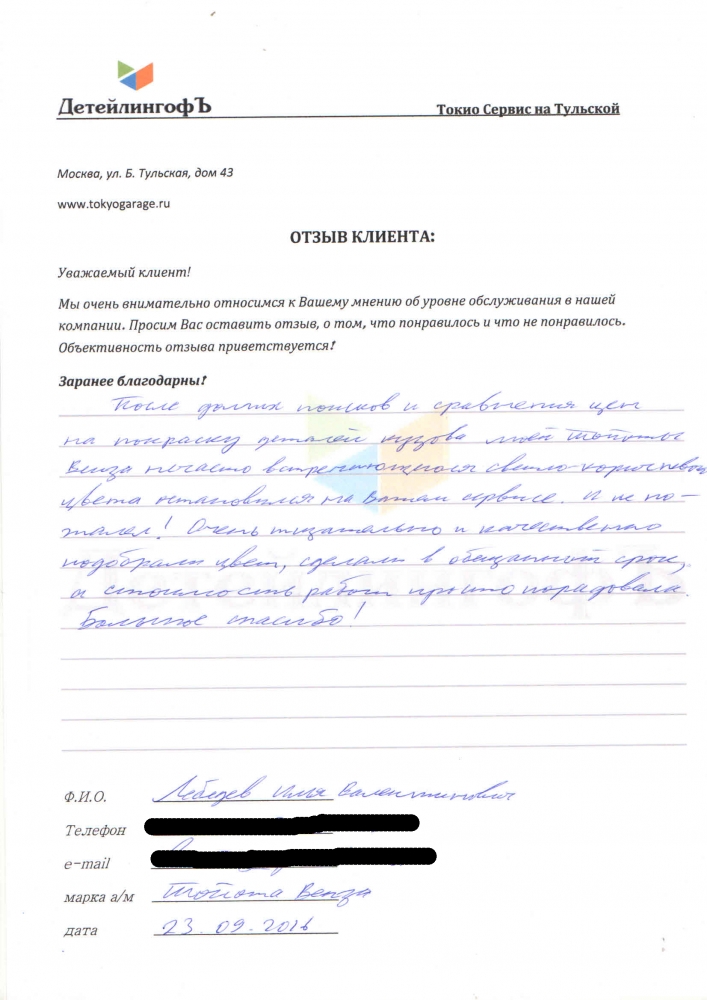 ДетейлингофЪ
Токио Сервис на Тульской
Москва, ул. Б. Тульская, дом 43
www.tokyogarage.ru
ОТЗЫВ КЛИЕНТА:
Уважаемый клиент!
Мы очень внимательно относимся к Вашему мнению об уровне обслуживания в нашей
компании. Просим Вас оставить отзыв, о том, что понравилось и что не понравилось.
Объективность отзыва приветствуется!
Заранее благодарны!
После долгих поисков и сравнения цен
на покраску деталей кузова моей Тойоты
Венза нечасто встречающегося светло-коричневого
цвета остановился на Вашем сервисе. И не по-
жалел! Очень тщательно и качественно
подобрали цвет, сделали в обещанный срок,
а стоимость работ просто порадовала.
Большое спасибо!
Ф.И.О. Лебедев Илья Валентинович
Телефон
e-mail
марка а/м Тойота Венза
дата 23.09.2016